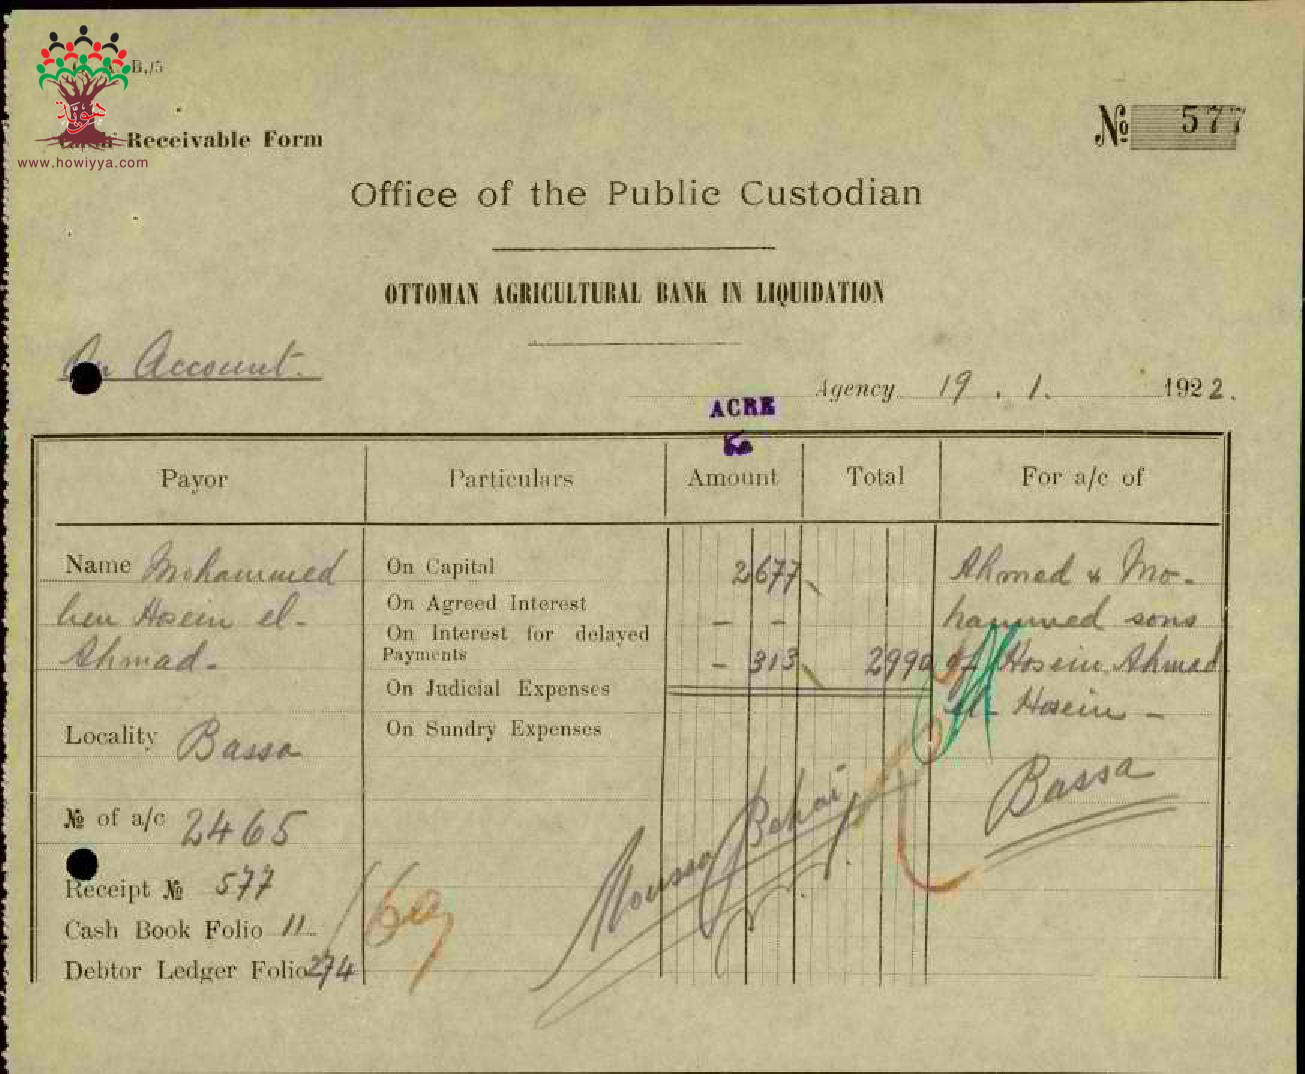 B./5
هوية
www.howiyya.com
Receivable Form
№ 577
Office of the Public Custodian
OTTOMAN AGRICULTURAL BANK IN LIQUIDATION
On Account.
Agency 19 . 1. 1922.
ACRE
Payor Particulars Amount Total For a/c of
Name Mohammed On Capital 2677 Ahmed & Mo-
ben Hosein el- On Agreed Interest - - hammed sons
Ahmad- On Interest for delayed Payments - 313 2990 of Hosein Ahmad
On Judicial Expenses el- Hosein -
Locality Bassa On Sundry Expenses
Bassa
№ of a/c 2465
Moussa Behai
Receipt № 577
Cash Book Folio 11
Debtor Ledger Folio 274